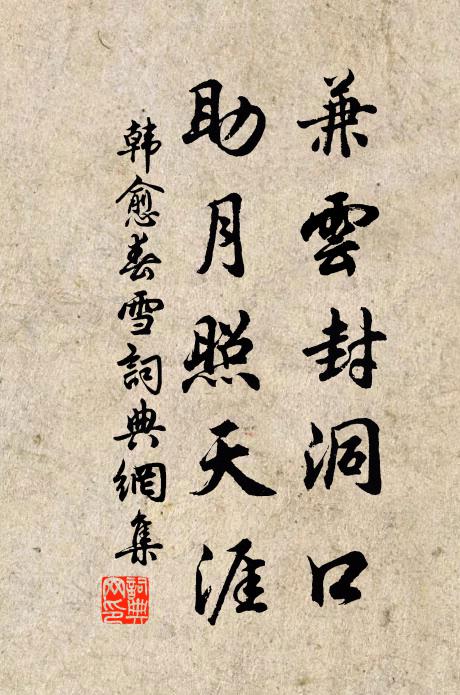 兼雲封洞口
助月照天涯
韩愈春雪詞典網集
詞典
网印